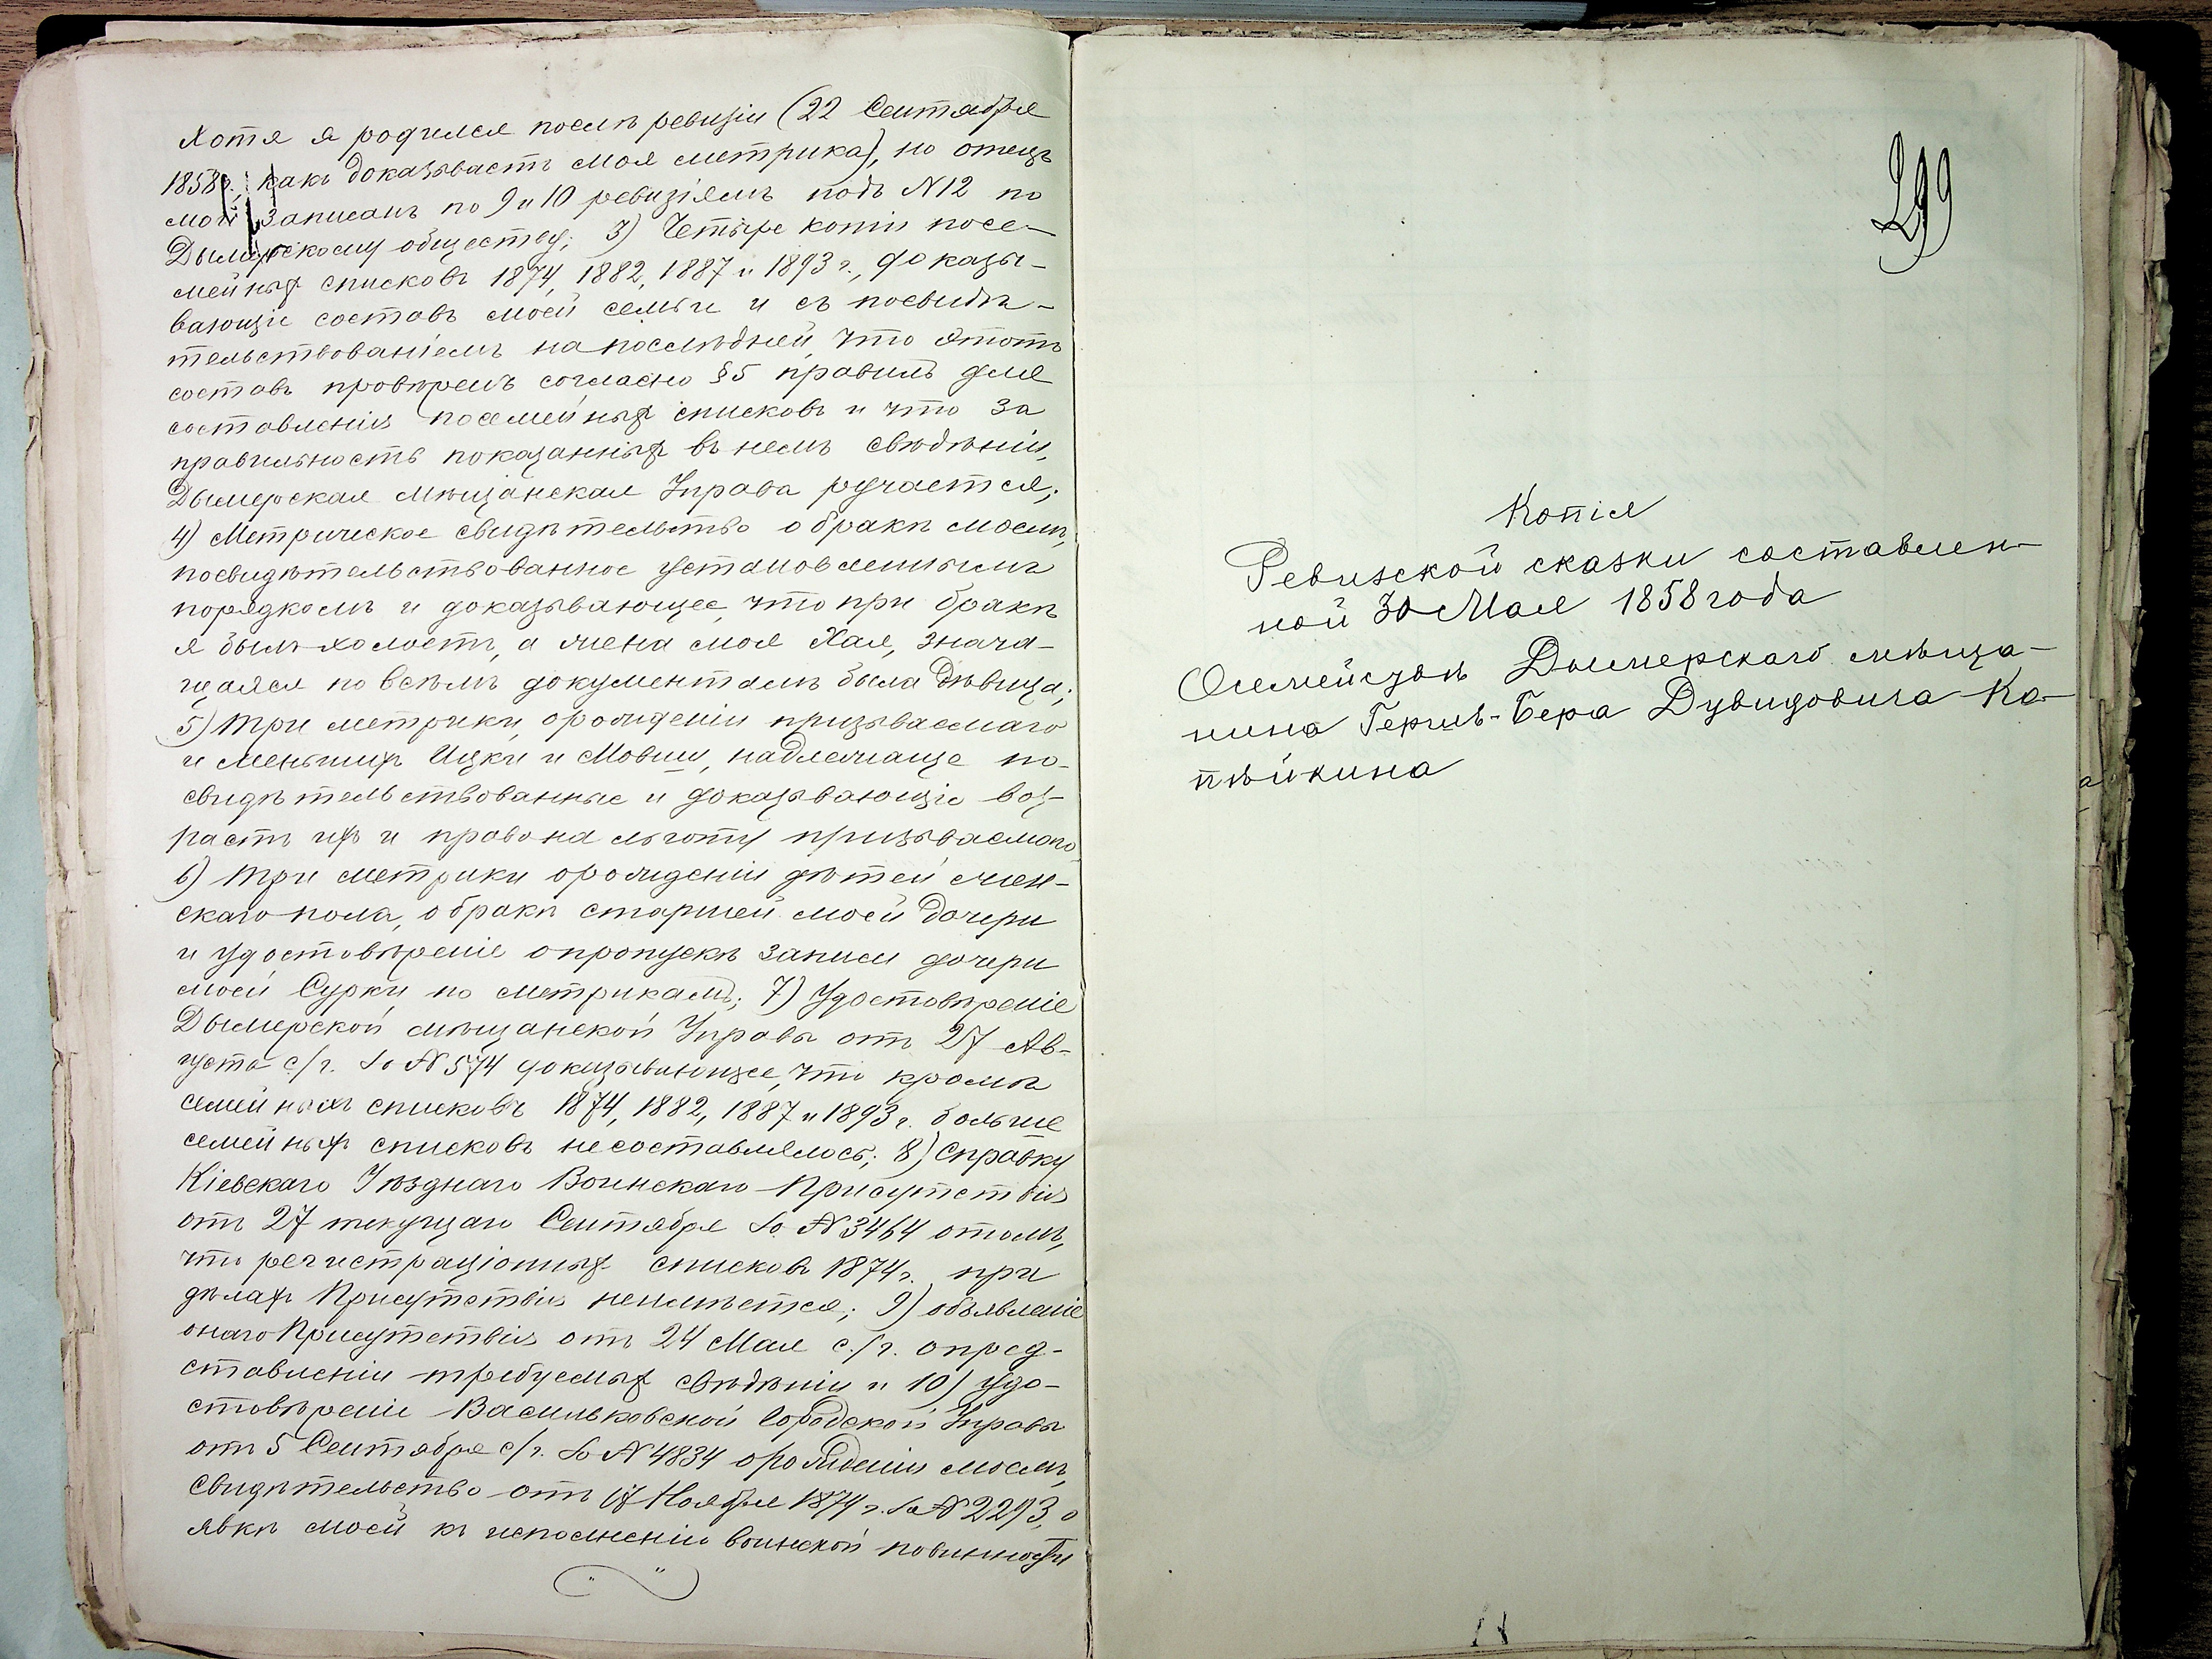 Хотя я родился послѣ ревизіи (22 Сентября
1858г., какъ доказываетъ моя метрика), но отецъ
мой записанъ по 9 и 10 ревизіямъ подъ №12 по
Дымерскому обществу; 3) Четыре копіи посе-
мейныхъ списковъ 1874, 1882, 1887 и 1893 г., доказы-
вающіе составъ моей семьи и съ посвидѣ-
тельствованіемъ на послѣдней, что этотъ
составъ провѣренъ согласно §5 правилъ для
составленія посемейныхъ списковъ и что за
правильность показанныхъ въ немъ свѣдѣній,
Дымерская Мѣщанская Управа ручается;
4) Метрическое свидѣтельство о бракѣ моемъ,
посвидѣтельствованное установленнымъ
порядкомъ и доказывающее, что при бракѣ
я былъ холостъ, а жена моя Хая, знача-
щаяся по всѣмъ документамъ была дѣвица;
5) три метрики, о рожденіи призываемаго
и меньшихъ Ицки и Мовши, надлежаще по-
свидѣтельствованные и доказывающіе воз-
растъ ихъ и право на льготу призываемого
6) три метрики о рожденіи дѣтей жен-
скаго пола, о бракѣ старшей моей дочери
и удостовѣреніе о пропускѣ записи дочери
моей Сурки по метрикамъ; 7) Удостовѣреніе
Дымерской мѣщанской Управы отъ 27 Ав-
густа с/г. за №574 доказывающее, что кромѣ
семейныхъ списковъ 1874, 1882, 1887 и 1893 г. больше
семейныхъ списковъ не составлялось; 8) Справку
Кіевскаго Уѣзднаго Воинскаго Присутствія
отъ 27 текущаго Сентября за №3464 о томъ,
что регистраціонныхъ списковъ 1874 г. при
дѣлахъ Присутствія не имѣется; 9) объявленіе
онаго Присутствія отъ 24 Мая с./г. о пред-
ставленіи требуемыхъ свѣдѣній и 10) удо-
стовѣреніе Васильковской Городской Управы
отъ 5 Сентября с/г. за №4834 о рожденіи моемъ,
свидѣтельство отъ 17 Ноября 1874 г. за №2293, о
явкѣ моей къ исполненію воинской повинности
299
Копія
Ревизской сказки составлен-
ной 30 Мая 1858 года
О семействѣ Дымерскаго мѣща-
нина Гершъ-Бера Дувидовича Ко-
пѣйкина